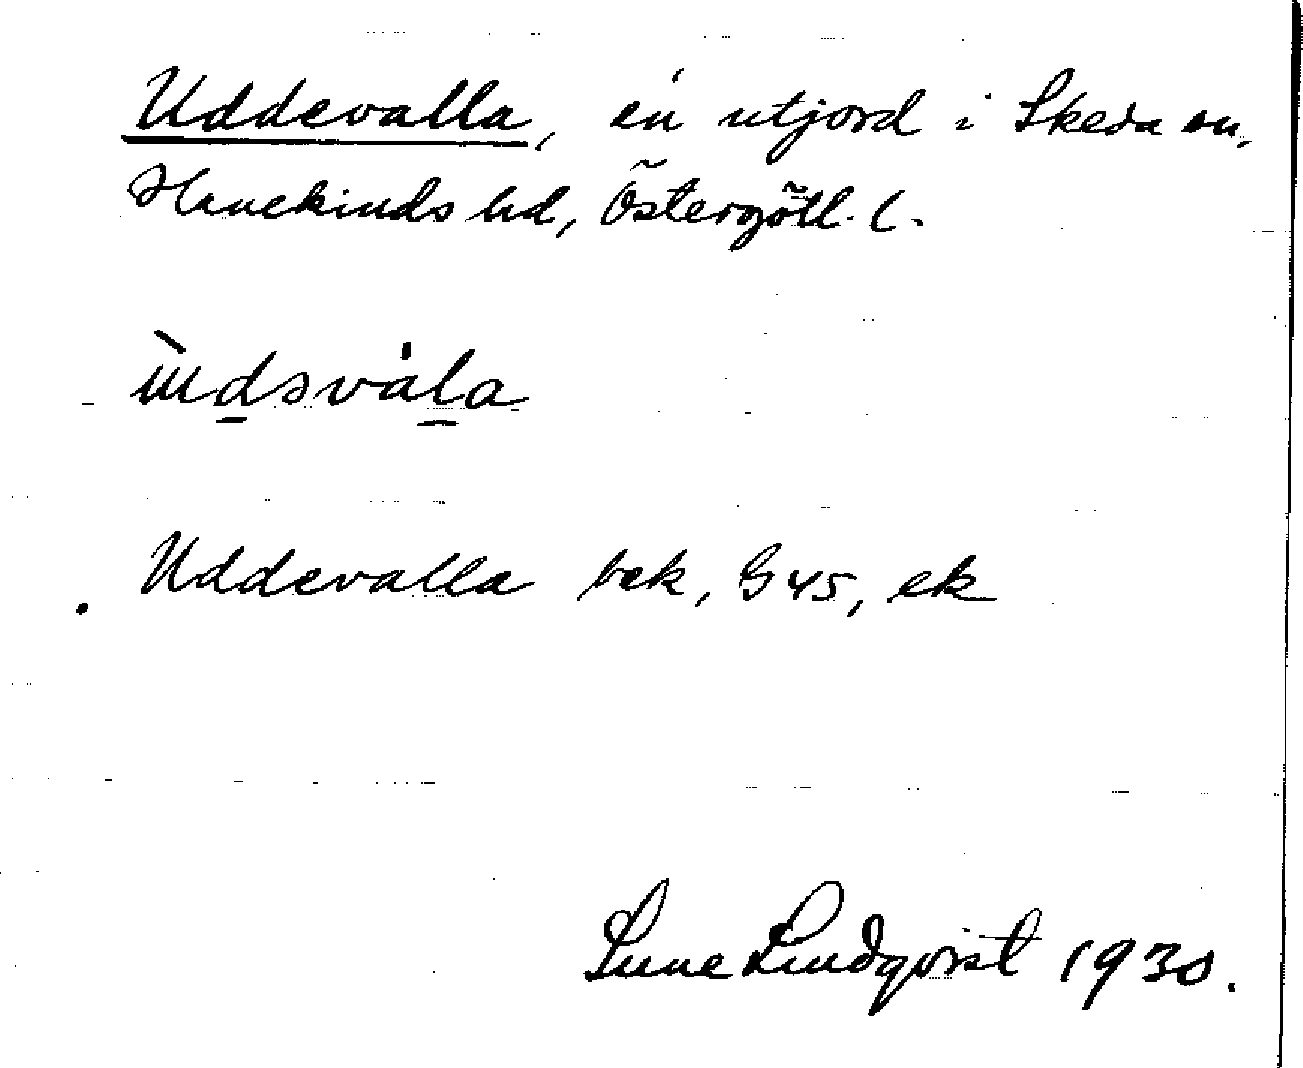 Uddevalla, en utjord i Skeda sn,
Hanekinds hd, Östergötl. l.
Uddevalla bek, G45, ek
Sune Lindqvist 1930.